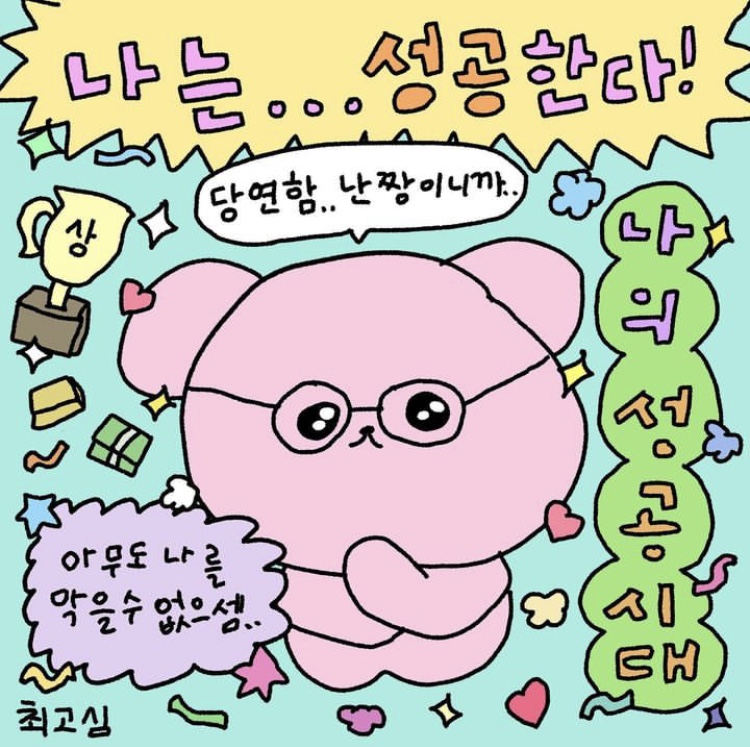 나는...성공한다!
당연함..난짱이니까..
상
나의성공시대
아무도 나를
막을수 없으셈..
최고심